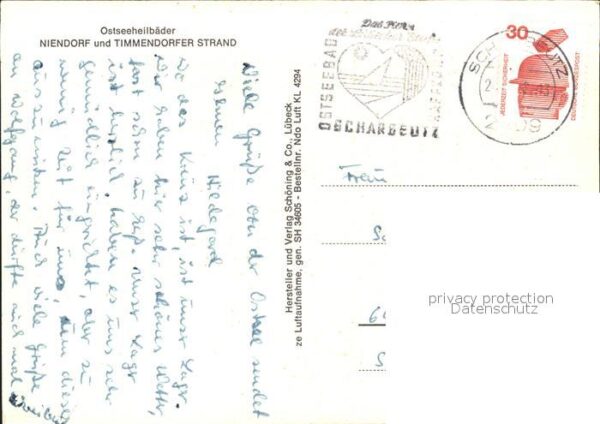 Ostseeheilbäder
NIENDORF und TIMMENDORFER STRAND
Viele Grüße von der Ostsee sendet
Ihnen Hildegard
Wo das Kreuz ist, ist unser Lager.
Wir haben hier sehr schönes Wetter,
fast schon zu heiß. Unser Lager
ist herrlich, haben es uns sehr
gemütlich eingerichtet, aber zu
wenig Zeit für uns, um dieses
auszunützen. Auch viele Grüße
an Wolfgang, der dürfte auch mal
Hersteller und Verlag Schöning & Co., Lübeck
ze Luftaufnahme, gen. SH 34605 - Bestellnr. Ndo Luft KL 4294
OSTSEEBAD
SCHARBEUTZ
SCHARBEUTZ
2409
30
JEDERZEIT SICHERHEIT
DEUTSCHE BUNDESPOST
Frau
privacy protection
Datenschutz